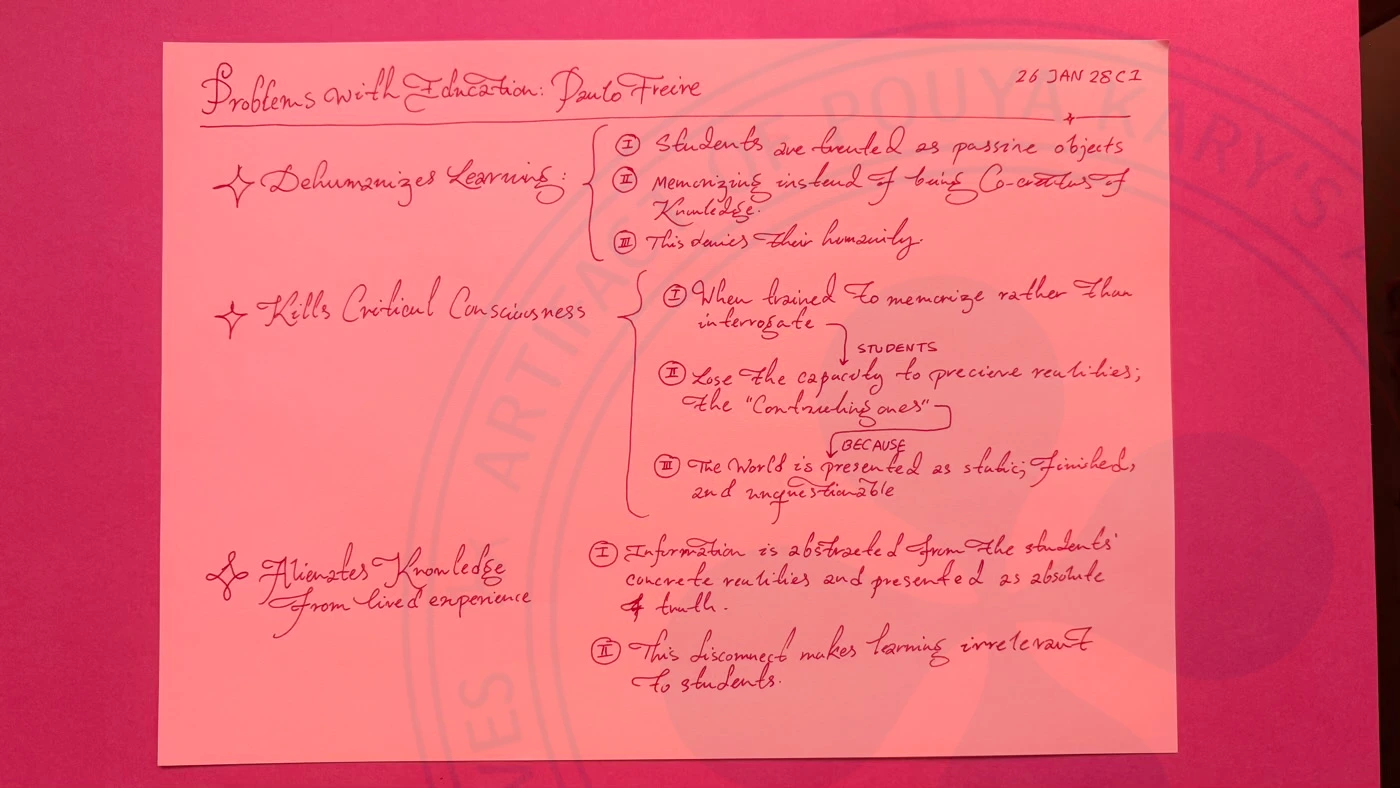 Problems with Education: Paulo Freire
26 JAN 28C1
Dehumanizes Learning:
I Students are treated as passive objects
II Memorizing instead of being Co-creators of
Knowledge.
III This denies their humanity.
Kills Critical Consciousness
I When trained to memorize rather than
interrogate
STUDENTS
II Lose the capacity to precieve realities;
the "Contraditing ones"
BECAUSE
III The World is presented as static, finished,
and unquestionable
Alienates Knowledge
from lived experience
I Information is abstracted from the students'
concrete realities and presented as absolute
truth.
II This disconnect makes learning irrelevant
to students.
ARTIFACT OF POUYA KARY'S